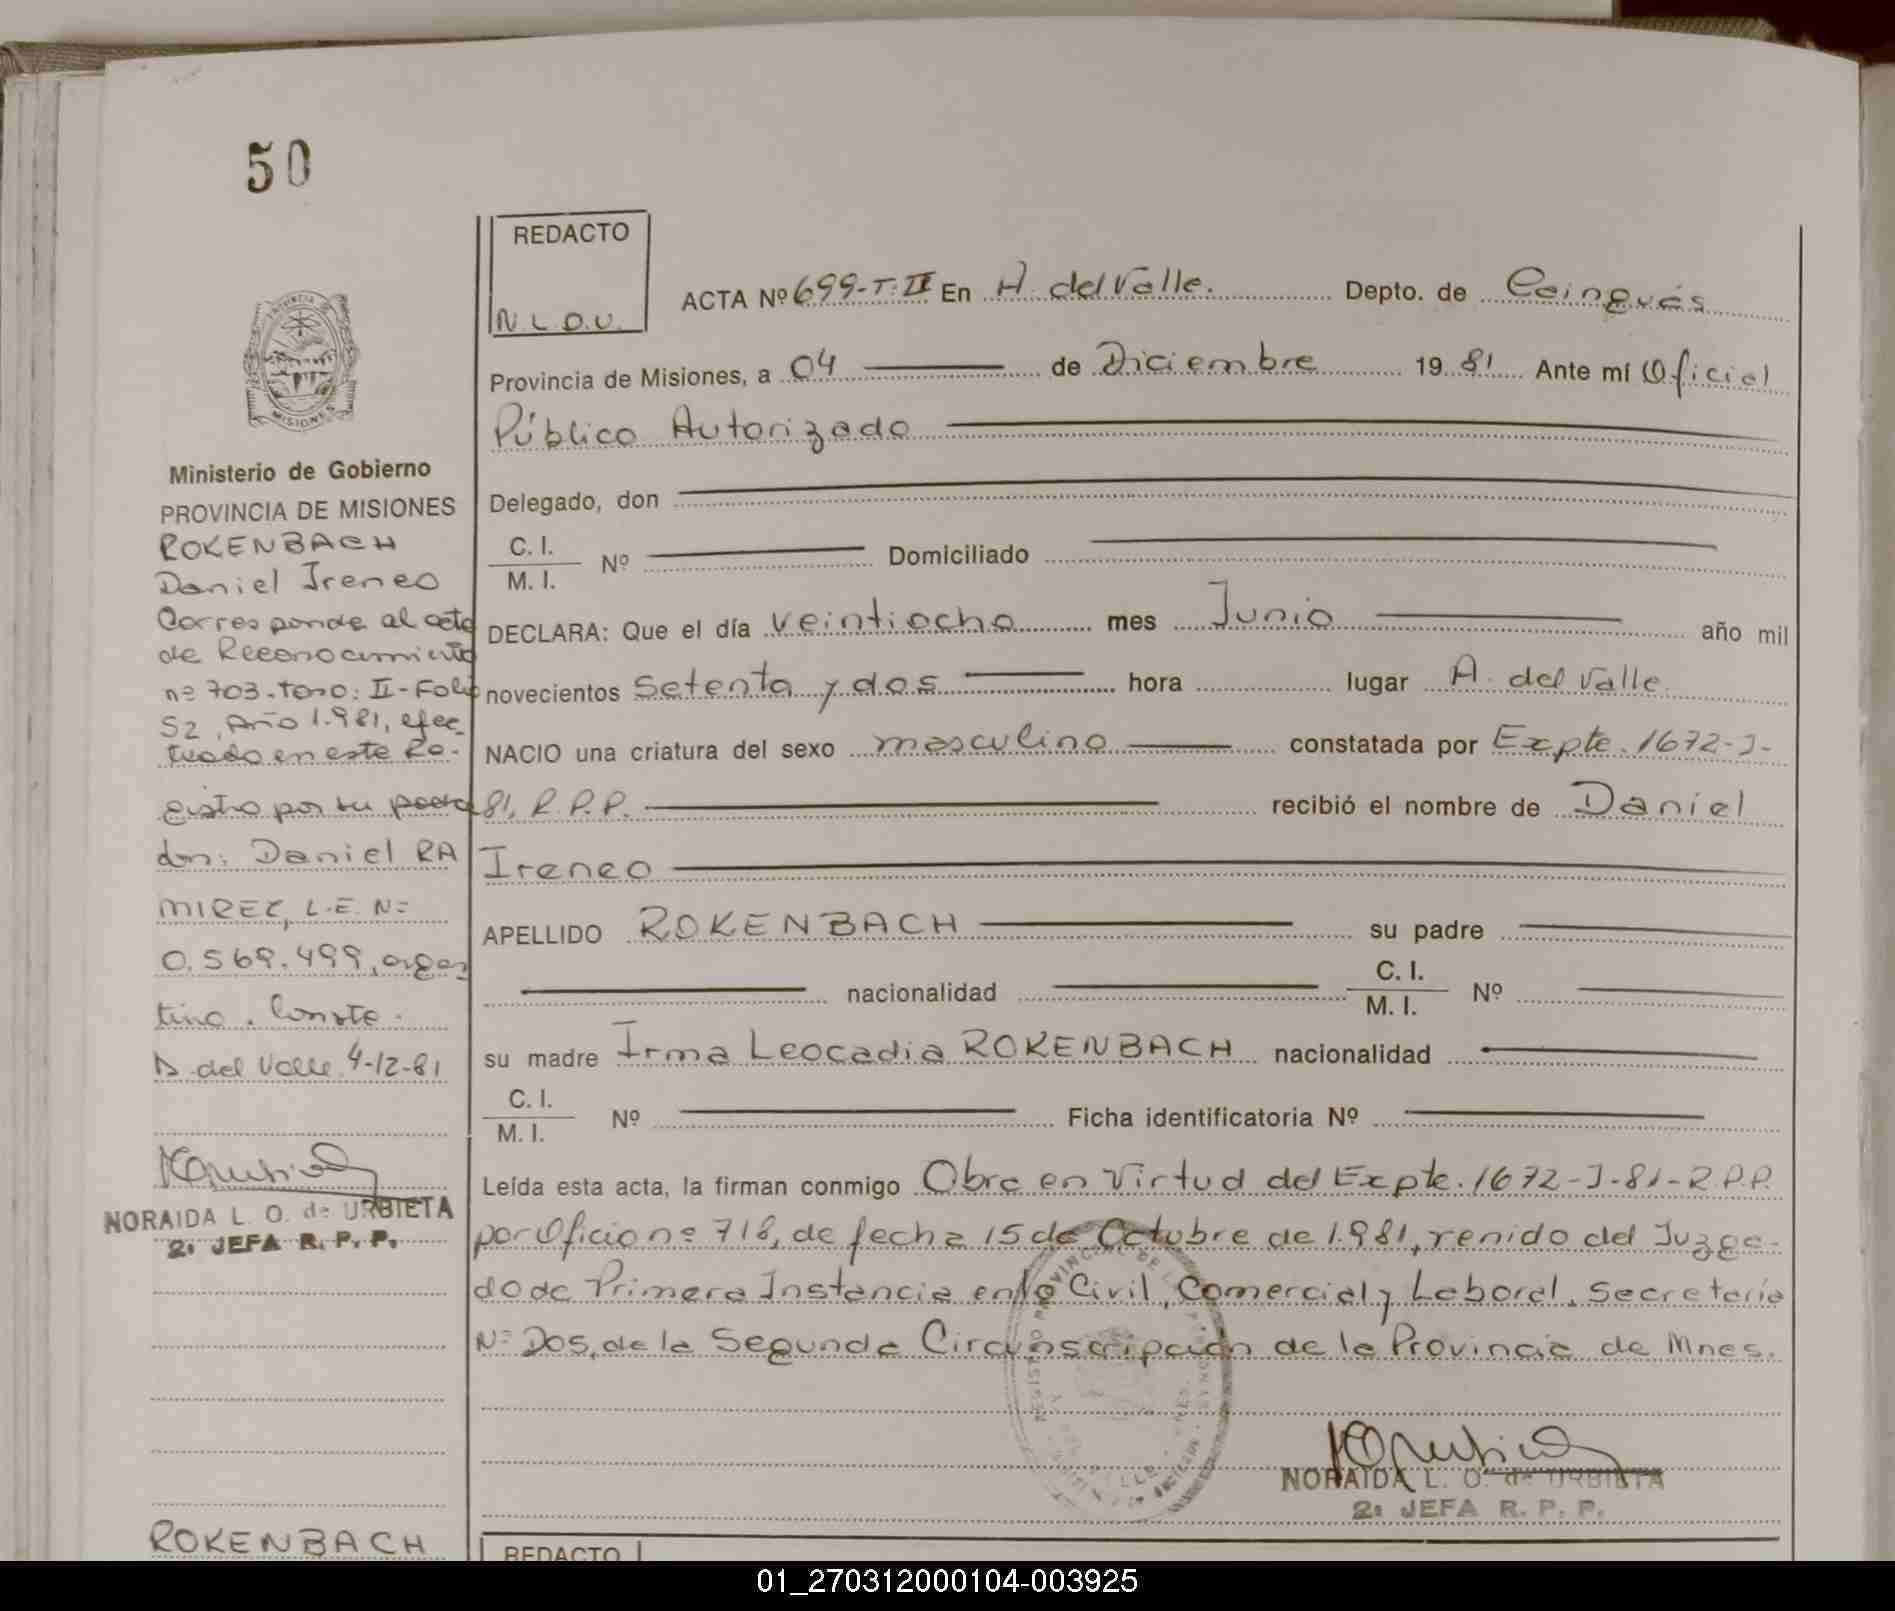 50
REDACTO
N.L.O.U.
ACTA Nº 699-T: II En A. del Valle. Depto. de Cainguás
Provincia de Misiones, a 04 de Diciembre 1981 Ante mí Oficial
Público Autorizado
Delegado, don
C. I.
M. I.
Nº Domiciliado
DECLARA: Que el día veintiocho mes Junio año mil
novecientos setenta y dos hora lugar A. del Valle
NACIO una criatura del sexo masculino constatada por Expte. 1672-J-
81, R.P.P. recibió el nombre de Daniel
Ireneo
APELLIDO ROKENBACH su padre
nacionalidad
C. I.
M. I.
Nº
su madre Irma Leocadia ROKENBACH nacionalidad
C. I.
M. I.
Nº Ficha identificatoria Nº
Leída esta acta, la firman conmigo Obra en Virtud del Expte. 1672-J-81-R.P.P.
por Oficio nº 718, de fecha 15 de Octubre de 1.981, venido del Juzga-
do de Primera Instancia en lo Civil, Comercial y Laboral, Secretaría
Nº Dos, de la Segunda Circunscripción de la Provincia de Mnes.
NORAIDA L. O. de URBIETA
2ª JEFA R. P. P.
PROVINCIA DE
MISIONES
Ministerio de Gobierno
PROVINCIA DE MISIONES
ROKENBACH
Daniel Ireneo
Corresponde al acta
de Reconocimiento
nº 703-Tomo: II-Folio
52, Año 1.981, efec
tuado en este Re-
gistro por su padre
don: Daniel RA
MIREZ, L.E. Nº
0.569.499, argen
tino. Conste.
A. del Valle 4-12-81
NORAIDA L. O. de URBIETA
2ª JEFA R. P. P.
ROKENBACH
REDACTO
01_270312000104-003925